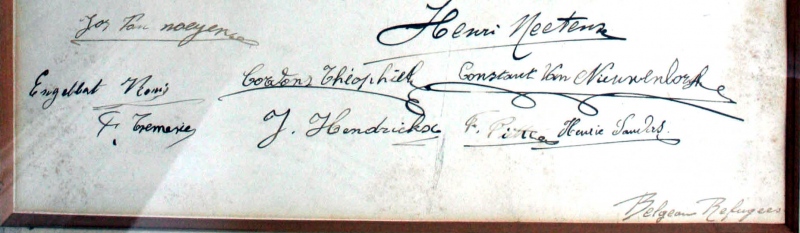 Jos Van noeyen Henri Neetens
Engelbat Nonis Cordons Théophile Constant Van Nieuwenborgh
F. Tremerie J. Hendrickx F. Henrie Sanders.
Belgean Refugees